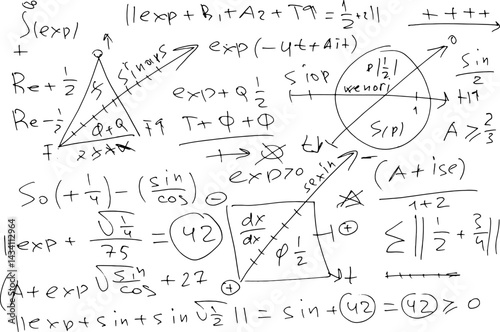 ∫(exp)
∞
||exp + B1 + A2 + T9 = 1/2 + 2||
++++
Re + 1/2
Re - 1/2
S
sinors
exp(-4t + Ait)
exp + Q 1/2
T + φ + φ
φ + Q
F
+9
siop
p|1/2|
wenori
1
S(p)
0
sin/2
+19
A ≥ 2/3
exp>0
sexsin
S0(+1/4) - (sin/cos)
(A + ise)/1+2
exp + √1/4/75 = 42
dx/dx
φ 1/2
Σ||1/2 + 3/4||
A + exp √sin/cos + 27
||exp + sin + sin √1/2|| = sin + 42 = 42 ≥ 0
Adobe Stock | #1434112964